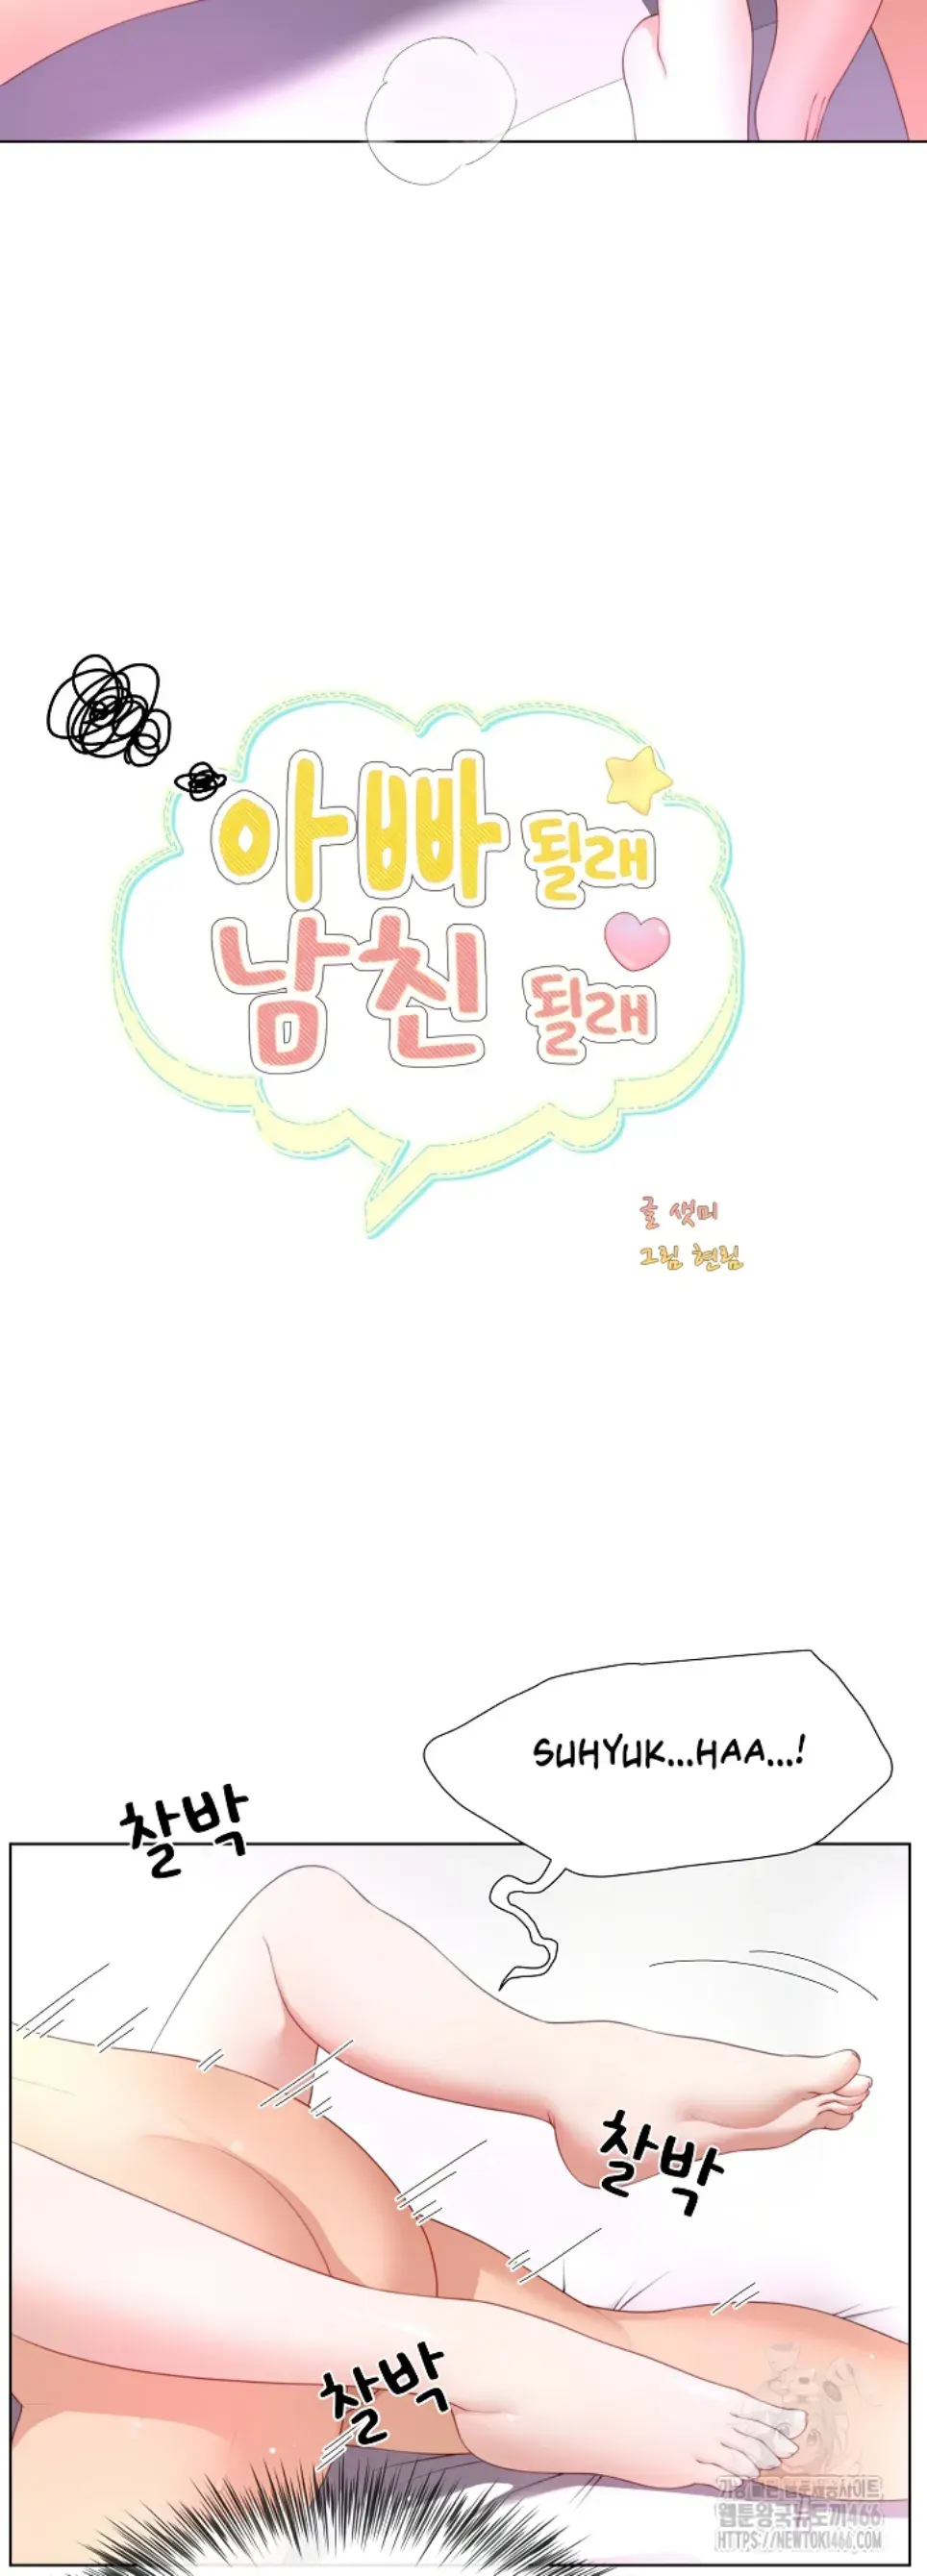 아빠 될래
남친 될래
글 샛미
그림 현림
SUHYUK...HAA...!
찰박
찰박
찰박
웹툰왕국뉴토끼466
HTTPS://NEWTOKI466.COM